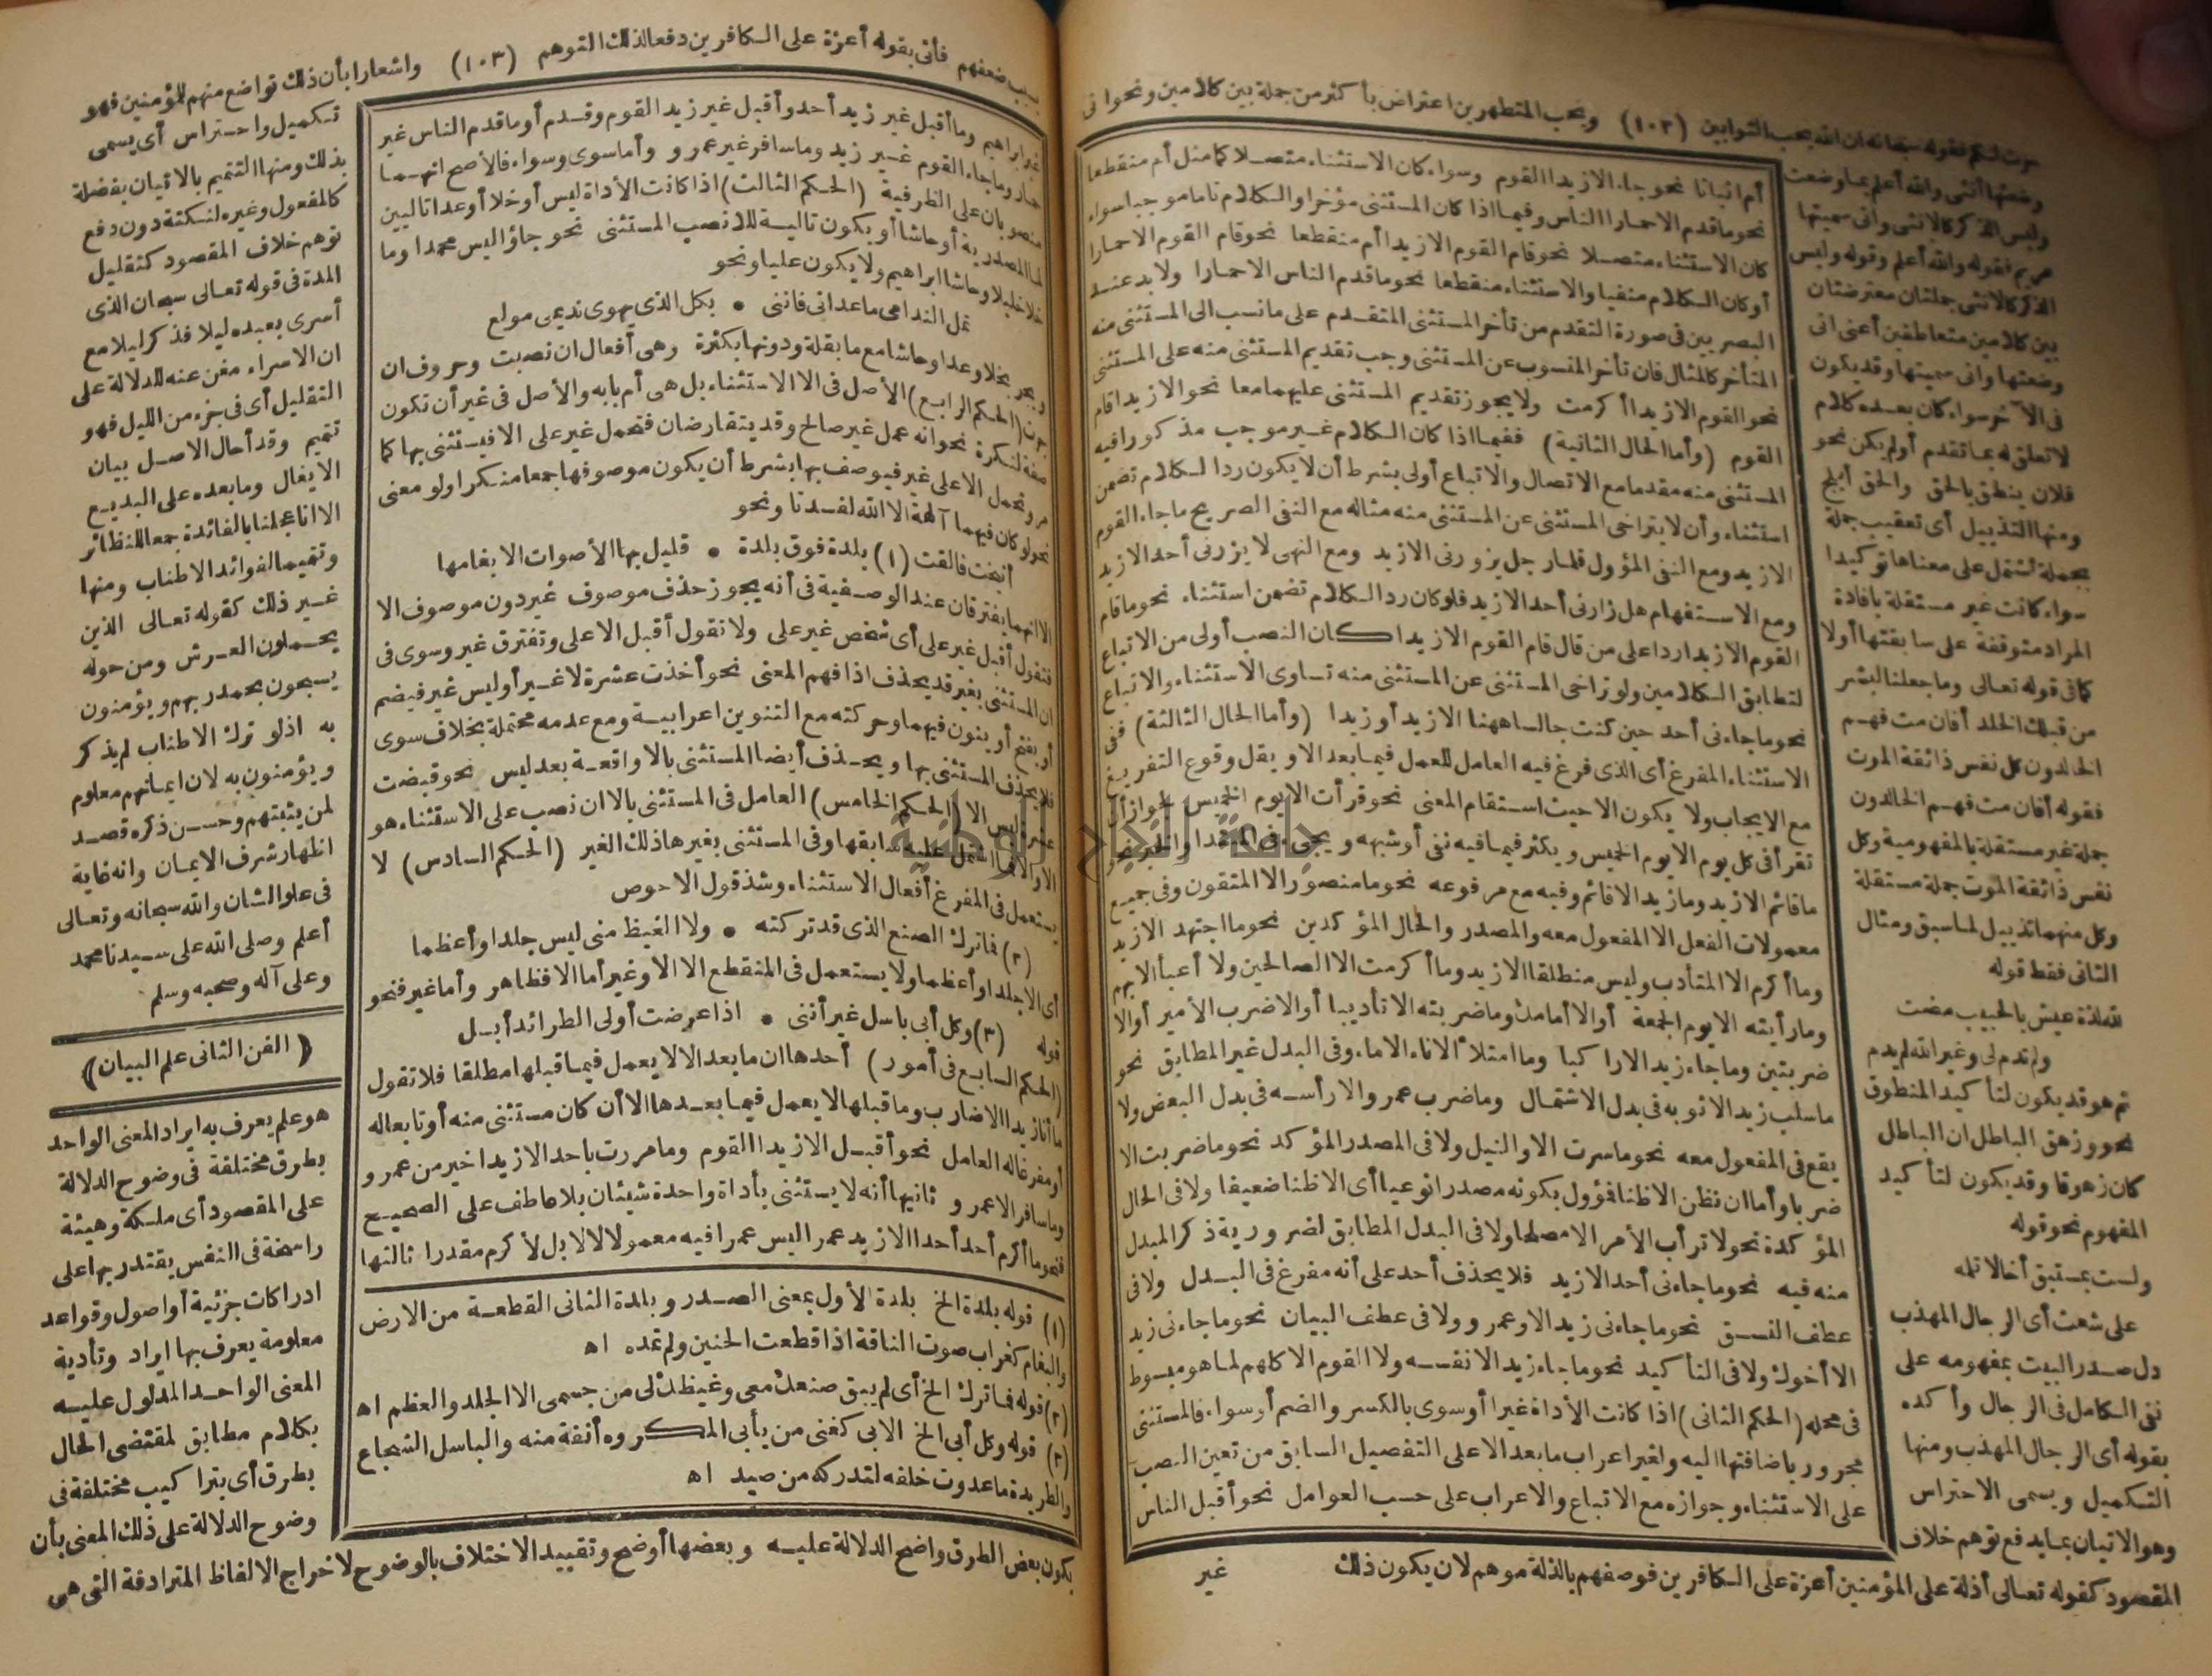 حرث لكم فقوله سبحانه ان الله يحب التوابين (١٠٢) ويحب المتطهرين اعتراض بأكثر من جملة بين كلامين ونحو انى
وضعتها أنثى والله أعلم بما وضعت
وليس الذكر كالانثى وانى سميتها
مريم فقوله والله أعلم وقوله وليس
الذكر كالانثى جملتان معترضتان
بين كلامين متعاطفين أعنى انى
وضعتها وانى سميتها وقد يكون
فى الآخر سواء كان بعده كلام
لا تعلق له بما تقدم أو لم يكن نحو
فلان ينطق بالحق والحق أبلج
ومنها التذييل أى تعقيب جملة
بجملة تشتمل على معناها توكيدا
سواء كانت غير مستقلة بافادة
المراد متوقفة على سابقتها أولا
كما فى قوله تعالى وما جعلنا لبشر
من قبلك الخلد أفان مت فهم
الخالدون كل نفس ذائقة الموت
فقوله أفان مت فهم الخالدون
جملة غير مستقلة بالمفهومية وكل
نفس ذائقة الموت جملة مستقلة
وكل منهما تذييل لما سبق ومثال
الثانى فقط قوله
لله لذة عيش بالحبيب مضت
ولم تدم لى وغير الله لم يدم
ثم هو قد يكون لتأكيد المنطوق
نحو وزهق الباطل ان الباطل
كان زهوقا وقد يكون لتأكيد
المفهوم نحو قوله
ولست بمستبق أخا لا تلمه
على شعث أى الرجال المهذب
دل صدر البيت بمفهومه على
نفى الكامل فى الرجال وأكده
بقوله أى الرجال المهذب ومنها
التكميل ويسمى الاحتراس
وهو الاتيان بما يدفع توهم خلاف
المقصود كقوله تعالى أذلة على المؤمنين أعزة على الكافرين فوصفهم بالذلة موهم لان يكون ذلك
أم اثباتا نحو جاء الا زيدا القوم وسواء كان الاستثناء متصلا كما مثل أم منقطعا
نحو ما قدم الا حمارا الناس وفيما اذا كان المستثنى مؤخرا والكلام تاما موجبا سواء
كان الاستثناء متصلا نحو قام القوم الا زيدا أم منقطعا نحو قام القوم الا حمارا
أو كان الكلام منفيا والاستثناء منقطعا نحو ما قدم الناس الا حمارا ولا بد عند
البصريين فى صورة التقدم من تأخر المستثنى المتقدم على ما نسب الى المستثنى منه
المتأخر كالمثال فان تأخر المنسوب عن المستثنى وجب تقديم المستثنى منه على المستثنى
نحو القوم الا زيدا أكرمت ولا يجوز تقديم المستثنى عليهما معا نحو الا زيدا قام
القوم (وأما الحال الثانية) ففيما اذا كان الكلام غير موجب مذكورا فيه
المستثنى منه مقدما مع الاتصال والاتباع أولى بشرط أن لا يكون ردا لكلام تضمن
استثناء وأن لا يتراخى المستثنى عن المستثنى منه مثاله مع النفى الصريح ما جاء القوم
الا زيد ومع النفى المؤول قلما رجل يزورنى الا زيد ومع النهى لا يزرنى أحد الا زيد
ومع الاستفهام هل زارنى أحد الا زيد فلو كان رد الكلام تضمن استثناء نحو ما قام
القوم الا زيدا ردا على من قال قام القوم الا زيدا كان النصب أولى من الاتباع
لتطابق الكلامين ولو تراخى المستثنى عن المستثنى منه تساوى الاستثناء والاتباع
نحو ما جاءنى أحد حين كنت جالسا ههنا الا زيد أو زيدا (وأما الحال الثالثة) ففى
الاستثناء المفرغ أى الذى فرغ فيه العامل للعمل فيما بعد الا ويقل وقوع التفريغ
مع الايجاب ولا يكون الا حيث استقام المعنى نحو قرأت الا يوم الخميس لجواز أن
تقرأ فى كل يوم الا يوم الخميس ويكثر فيما فيه نفى أو شبهه ويجىء فى المبتدا والخبر نحو
ما قائم الا زيد وما زيد الا قائم وفيه مع مرفوعه نحو ما منصور الا المتقون وفى جميع
معمولات الفعل الا المفعول معه والمصدر والحال المؤكدين نحو ما اجتهد الا زيد
وما أكرم الا المتأدب وليس منطلقا الا زيد وما أكرمت الا الصالحين ولا أعبأ الا بهم
وما رأيته الا يوم الجمعة أو الا أمامك وما ضربته الا تأديبا أو الا ضرب الأمير أو الا
ضربتين وما جاء زيد الا راكبا وما امتلأ الاناء الا ماء وفى البدل غير المطابق نحو
ما سلب زيد الا ثوبه فى بدل الاشتمال وما ضرب عمرو الا رأسه فى بدل البعض ولا
يقع فى المفعول معه نحو ما سرت الا والنيل ولا فى المصدر المؤكد نحو ما ضربت الا
ضربا وأما ان نظن الا ظنا فؤول بكونه مصدرا نوعيا أى الا ظنا ضعيفا ولا فى الحال
المؤكدة نحو لا تر أب الأمر الا مصلحا ولا فى البدل المطابق لضرورية ذكر المبدل
منه فيه نحو ما جاءنى أحد الا زيد فلا يحذف أحد على أنه مفرغ فى البدل ولا فى
عطف النسق نحو ما جاءنى زيد الا وعمرو ولا فى عطف البيان نحو ما جاءنى زيد
الا أخوك ولا فى التأكيد نحو ما جاء زيد الا نفسه ولا القوم الا كلهم لما هو مبسوط
فى محله (الحكم الثانى) اذا كانت الأداة غيرا أو سوى بالكسر والضم أو سواء فالمستثنى
مجرور باضافتها اليه ولغير اعراب ما بعد الا على التفصيل السابق من تعين النصب
على الاستثناء وجوازه مع الاتباع والاعراب على حسب العوامل نحو أقبل الناس
غير
بسبب ضعفهم فأتى بقوله أعزة على الكافرين دفعا لذلك التوهم (١٠٣) واشعارا بأن ذلك تواضع منهم للمؤمنين فهو
غير ابراهيم وما أقبل غير زيد أحد وأقبل غير زيد القوم وقدم أو ما قدم الناس غير
حمار وما جاء القوم غير زيد وما سافر غير عمرو وأما سوى وسواء فالأصح انهما
منصوبان على الظرفية (الحكم الثالث) اذا كانت الأداة ليس أو خلا أو عدا تاليين
لما المصدرية أو حاشا أو يكون تالية للا نصب المستثنى نحو جاؤا ليس محمدا وما
خلا خليلا وحاشا ابراهيم ولا يكون عليا ونحو
تمل الندامى ما عدانى فاننى • بكل الذى يهوى نديمى مولع
ويجر بخلا وعدا وحاشا مع ما بقلة ودونها بكثرة وهى أفعال ان نصبت وحروف ان
جرت (الحكم الرابع) الأصل فى الا الاستثناء بل هى أم بابه والأصل فى غير أن تكون
صفة لنكرة نحو انه عمل غير صالح وقد يتقارضان فتحمل غير على الا فيستثنى بها كما
مر وتحمل الا على غير فيوصف بها بشرط أن يكون موصوفها جمعا منكرا ولو معنى
نحو لو كان فيهما آلهة الا الله لفسدتا ونحو
أنيخت فالقت (١) بلدة فوق بلدة • قليل بها الأصوات الا بغامها
الا انهما يفترقان عند الوصفية فى أنه يجوز حذف موصوف غير دون موصوف الا
فتقول أقبل غير على أى شخص غير على ولا تقول أقبل الا على وتفترق غير وسوى فى
ان المستثنى بغير قد يحذف اذا فهم المعنى نحو أخذت عشرة لا غير أو ليس غير فيضم
أو يفتح أو ينون فيهما وحركته مع التنوين اعرابية ومع عدمه محتملة بخلاف سوى
فلا يحذف المستثنى بها ويحذف أيضا المستثنى بالا واقعة بعد ليس نحو قبضت
عشرة ليس الا (الحكم الخامس) العامل فى المستثنى بالا ان نصب على الاستثناء هو
الا والا فما عمل عليه سابقها وفى المستثنى بغير ها ذلك الغير (الحكم السادس) لا
يستعمل فى المفرغ أفعال الاستثناء وشذ قول الاحوص
(٢) فما ترك الصنع الذى قد تركته • ولا الغيظ منى ليس جلدا وأعظما
أى الا جلدا وأعظما ولا يستعمل فى المنقطع الا الا وغير أما الا فظاهر وأما غير فنحو
قوله (٣) وكل أبى باسل غير أننى • اذا عرضت أولى الطرائد أبسل
(الحكم السابع فى أمور) أحدها ان ما بعد الا لا يعمل فيما قبلها مطلقا فلا تقول
ما أنا زيدا الا ضارب وما قبلها لا يعمل فيما بعدها الا أن كان مستثنى منه أو تابعا له
أو مفرغا له العامل نحو أقبل الا زيدا القوم وما مررت باحد الا زيدا خير من عمرو
وما سافر الا عمرو ثانيها أنه لا يستثنى بأداة واحدة شيئان بلا عاطف على الصحيح
فنحو ما أكرم أحد أحدا الا زيد عمرا ليس عمرا فيه معمولا لا لا بل لأكرم مقدرا ثالثها
(١) قوله بلدة الخ بلدة الأول بمعنى الصدر وبلدة الثانى القطعة من الارض
والبغام كغراب صوت الناقة اذا قطعت الحنين ولم تمده اه
(٢) قوله فما ترك الخ أى لم يبق صنعك معى وغيظك لى من جسمى الا الجلد والعظم اه
(٣) قوله وكل أبى الخ الابى كغنى من يأبى المكروه أنفة منه والباسل الشجاع
والطريدة ما عدوت خلفه لتدركه من صيد اه
تكميل واحتراس أى يسمى
بذلك ومنها التتميم بالاتيان بفضلة
كالمفعول وغيره لنكتة دون دفع
توهم خلاف المقصود كتقليل
المدة فى قوله تعالى سبحان الذى
أسرى بعبده ليلا فذكر ليلا مع
ان الاسراء مغن عنه للدلالة على
التقليل أى فى جزء من الليل فهو
تتميم وقد أحال الاصل بيان
الايغال وما بعده على البديع
الا انا عجلنا بالفائدة جمعا للنظائر
وتتميما لفوائد الاطناب ومنها
غير ذلك كقوله تعالى الذين
يحملون العرش ومن حوله
يسبحون بحمد ربهم ويؤمنون
به اذ لو ترك الاطناب لم يذكر
ويؤمنون به لان ايمانهم معلوم
لمن يثبتهم وحسن ذكره قصد
اظهار شرف الايمان وانه غاية
فى علو الشان والله سبحانه وتعالى
أعلم وصلى الله على سيدنا محمد
وعلى آله وصحبه وسلم
(الفن الثانى علم البيان)
هو علم يعرف به ايراد المعنى الواحد
بطرق مختلفة فى وضوح الدلالة
على المقصود أى ملكة وهيئة
راسخة فى النفس يقتدر بها على
ادراكات جزئية أو اصول وقواعد
معلومة يعرف بها ايراد وتأدية
المعنى الواحد المدلول عليه
بكلام مطابق لمقتضى الحال
بطرق أى بتراكيب مختلفة فى
وضوح الدلالة على ذلك المعنى بأن
يكون بعض الطرق واضح الدلالة عليه وبعضها أوضح وتقييد الاختلاف بالوضوح لاخراج الالفاظ المترادفة التى هى
جامعة النجاح الوطنية